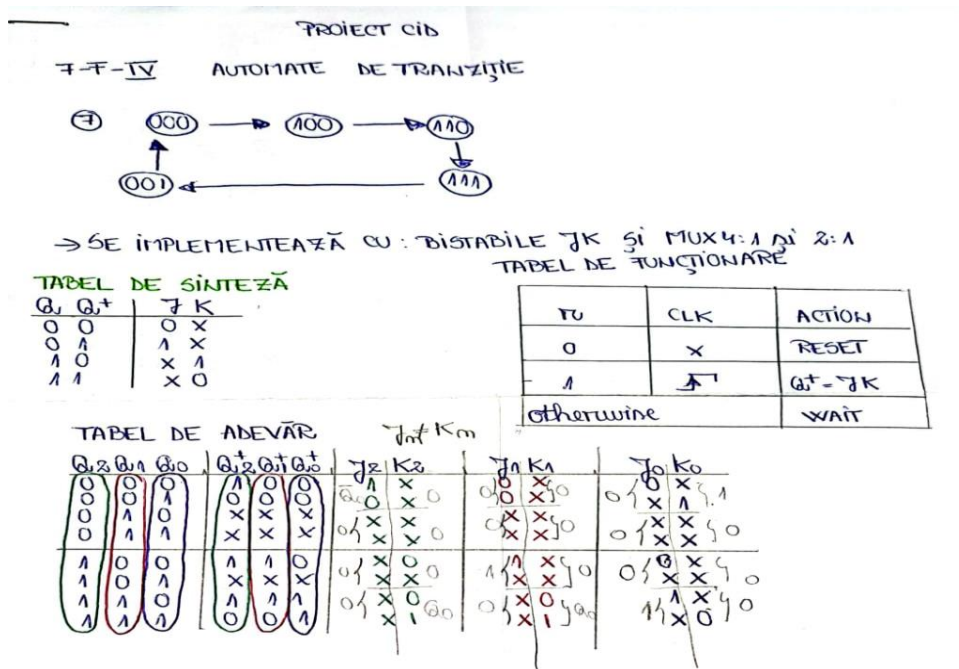 PROIECT CID
7-F-IV AUTOMATE DE TRANZIȚIE
7 000 100 110
001 111
→ SE IMPLEMENTEAZĂ CU: BISTABILE JK ȘI MUX 4:1 ȘI 2:1
TABEL DE FUNCȚIONARE
TABEL DE SINTEZĂ
Q Q+ J K
0 0 0 X
0 1 1 X
1 0 X 1
1 1 X 0
CLK ACTION
0 X RESET
1 Q+ = JK
otherwise WAIT
TABEL DE ADEVĂR Jn ≠ Kn
Q2 Q1 Q0 Q2+ Q1+ Q0+ J2 K2 J1 K1 J0 K0
0 0 0 1 0 0 1 X 0 0 X 0 0 0 X 1
0 0 1 0 0 0 Q̄0 0 X 0 X X 1
0 1 0 X X X 0 X X X X 0 0 X X 0
0 1 1 X X X X X 0 X X X X
1 0 0 1 1 0 0 X 0 1 1 X 0 0 0 X 0
1 0 1 X X X X X 0 X X X X
1 1 0 1 1 1 0 X 0 Q0 0 X 0 Q0 1 1 X 0
1 1 1 0 0 1 X 1 X 1 X 0